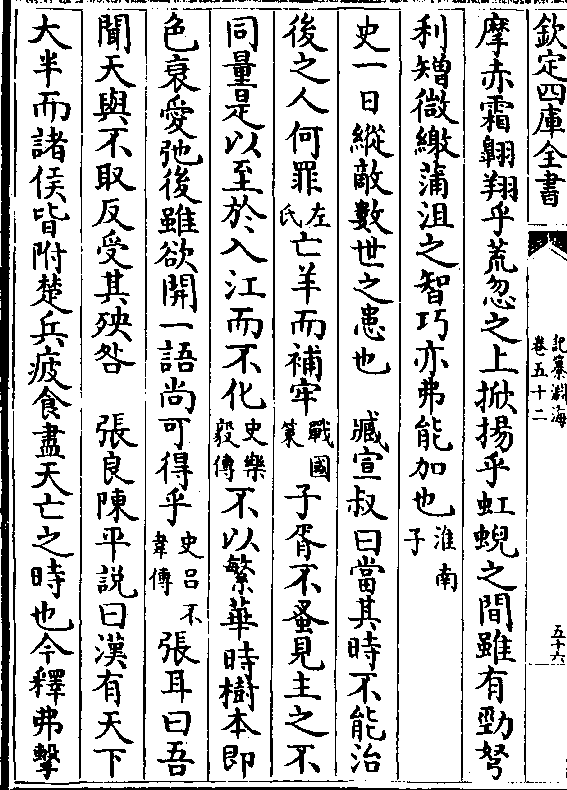 欽定四庫全書
記纂淵海
卷五十二
五十六
摩赤霜翱翔乎荒忽之上掀揚乎虹蜺之間雖有勁弩
利矰微繳蒲沮之智巧亦弗能加也淮南子
史一日縱敵數世之患也　臧宣叔曰當其時不能治
後之人何罪左氏亡羊而補牢戰國策子胥不蚤見主之不
同量是以至於入江而不化史樂毅傳不以繁華時樹本即
色衰愛弛後雖欲開一語尚可得乎史呂不韋傳張耳曰吾
聞天與不取反受其殃咎　張良陳平說曰漢有天下
大半而諸侯皆附楚兵疲食盡天亡之時也今釋弗擊